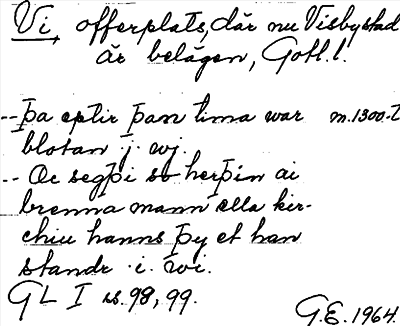 Vi, offerplats, där nu Visby stad
är belägen, Gotl. l.
-- Þa eptir þan tima war m. 1300-t
blotan .j. wj.
-- Oc segþi so herþin ai
brenna mann ella kir-
chiu hanns þy et han
standr .i. wi.
GL I s. 98, 99.
G.E. 1964.